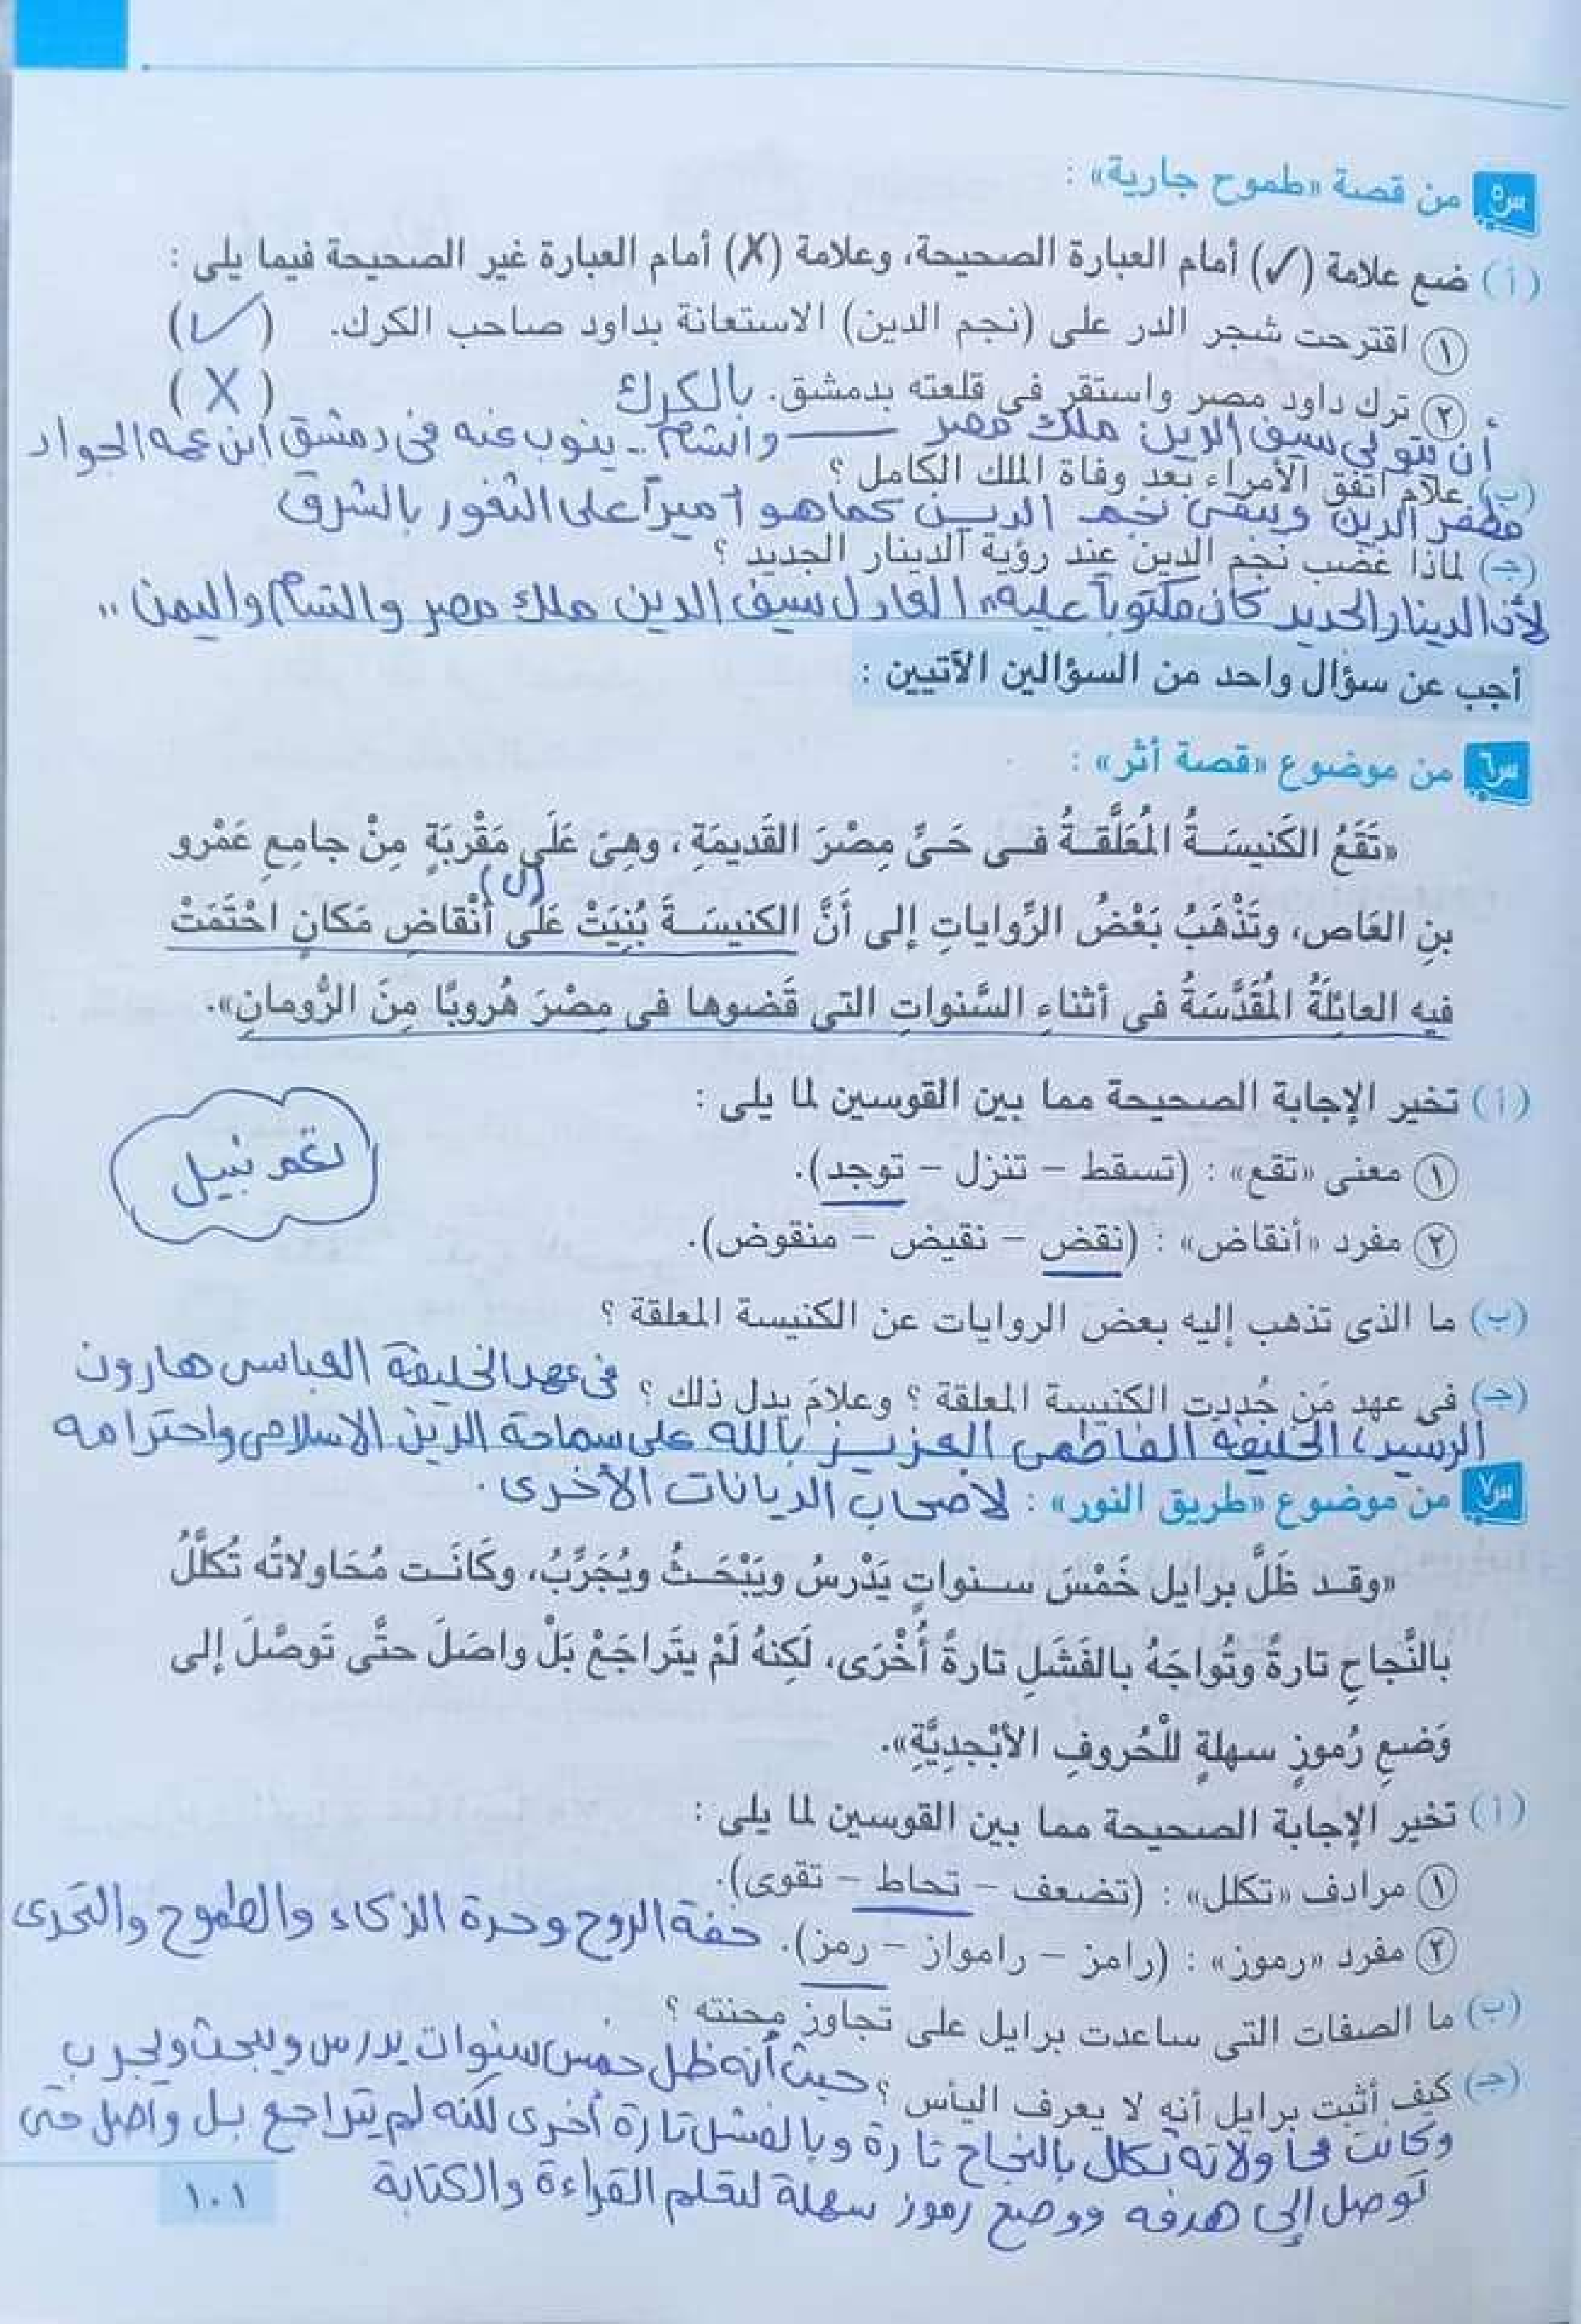 س٥ من قصة «طموح جارية» :
(أ) ضع علامة (✓) أمام العبارة الصحيحة، وعلامة (X) أمام العبارة غير الصحيحة فيما يلى :
١ اقترحت شجر الدر على (نجم الدين) الاستعانة بداود صاحب الكرك. (✓)
٢ ترك داود مصر واستقر فى قلعته بدمشق. بالكرك (X)
أن يتولى سيف الدين ملك مصر والشام - ينوب عنه فى دمشق ابن عمه الجواد
(ب) علام اتفق الأمراء بعد وفاة الملك الكامل ؟
مظفر الدين ويبقى نجم الدين كما هو أميراً على الثغور بالشرق
(جـ) لماذا غضب نجم الدين عند رؤية الدينار الجديد ؟
لأن الدينار الجديد كان مكتوباً عليه " العادل سيف الدين ملك مصر والشام واليمن "
أجب عن سؤال واحد من السؤالين الآتيين :
س٦ من موضوع «قصة أثر» :
«تَقَعُ الكَنيسَةُ المُعَلَّقةُ فى حَىِّ مِصْرَ القَديمَةِ، وهِىَ عَلَى مَقْرُبَةٍ مِنْ جامِعِ عَمْرو
(ب)
بنِ العَاص، وتَذْهَبُ بَعْضُ الرِّواياتِ إلى أَنَّ الكنيسَةَ بُنِيَتْ عَلَى أَنْقاضِ مَكَانٍ احْتَمَتْ
فيه العائِلَةُ المُقَدَّسَةُ فى أثناءِ السَّنواتِ التى قَضوها فى مِصْرَ هُروبًا مِنَ الرُّومانِ».
(أ) تخير الإجابة الصحيحة مما بين القوسين لما يلى :
١ معنى «تقع» : (تسقط – تنزل – توجد).
نغم نبيل
٢ مفرد «أنقاض» : (نقض – نقيض – منقوض).
(ب) ما الذى تذهب إليه بعض الروايات عن الكنيسة المعلقة ؟
(جـ) فى عهد مَن جُددت الكنيسة المعلقة ؟ وعلامَ يدل ذلك ؟ فى عهد الخليفة العباسى هارون
الرشيد، الخليفة الفاطمى العزيز بالله على سماحة الدين الإسلامى واحترامه
س٧ من موضوع «طريق النور» : لأصحاب الديانات الأخرى .
«وقد ظَلَّ برايل خَمْسَ سنواتٍ يَدْرسُ ويَبْحَثُ ويُجَرِّبُ، وكَانَت مُحَاولاتُه تُكلَّلُ
بالنَّجاحِ تارةً وتُواجَهُ بالفَشَلِ تارةً أُخْرَى، لَكِنهُ لَمْ يتَراجَعْ بَلْ واصَلَ حتَّى تَوصَّلَ إلى
وَضعِ رُموزٍ سهلةٍ للْحُروفِ الأبْجديَّةِ».
(أ) تخير الإجابة الصحيحة مما بين القوسين لما يلى :
١ مرادف «تكلل» : (تضعف – تحاط – تقوى).
٢ مفرد «رموز» : (رامز – راموز – رمز). خفة الروح وحدة الذكاء والطموح والتحدى
(ب) ما الصفات التى ساعدت برايل على تجاوز محنته ؟
(جـ) كيف أثبت برايل أنه لا يعرف اليأس ؟ حيث أنه ظل خمس سنوات يدرس ويبحث ويجرب
وكانت محاولاته تكلل بالنجاح تارة وبالفشل تارة أخرى لكنه لم يتراجع بل واصل حتى
توصل إلى هدفه ووضع رموز سهلة لتعلم القراءة والكتابة
١٠١